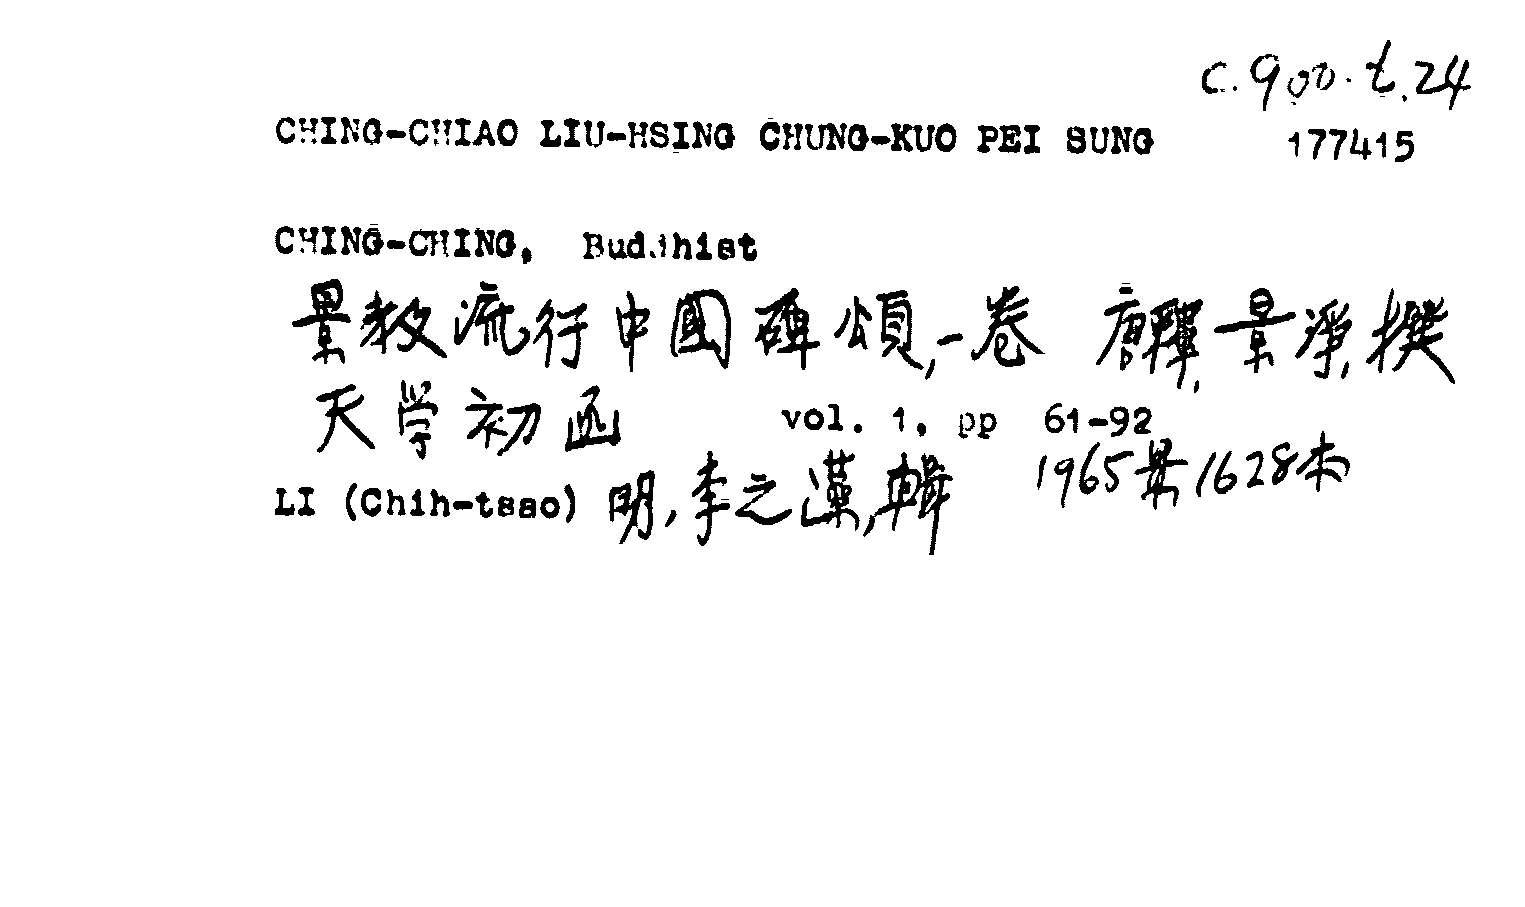 c.900.t.24
CHING-CHIAO LIU-HSING CHUNG-KUO PEI SUNG 177415
CHING-CHING, Buddhist
景教流行中國碑頌,一卷 唐釋,景淨,撰
天学初函 vol. 1, pp 61-92
1965景1628本
LI (Chih-tsao) 明,李之藻,輯